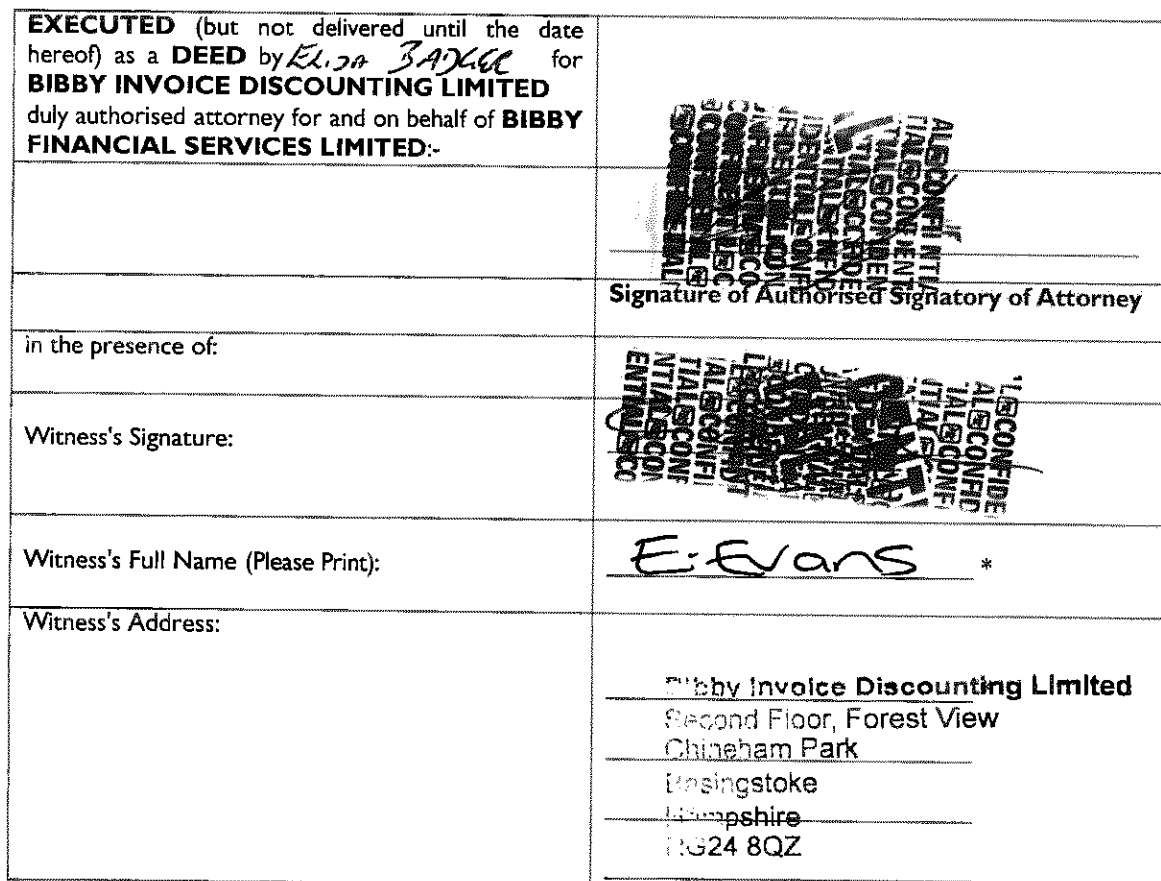 EXECUTED (but not delivered until the date
hereof) as a DEED by ELIZA BADGER for
BIBBY INVOICE DISCOUNTING LIMITED
duly authorised attorney for and on behalf of BIBBY
FINANCIAL SERVICES LIMITED:-
Signature of Authorised Signatory of Attorney
in the presence of:
Witness's Signature:
Witness's Full Name (Please Print):
E. Evans *
Witness's Address:
Bibby Invoice Discounting Limited
Second Floor, Forest View
Chineham Park
Basingstoke
Hampshire
RG24 8QZ